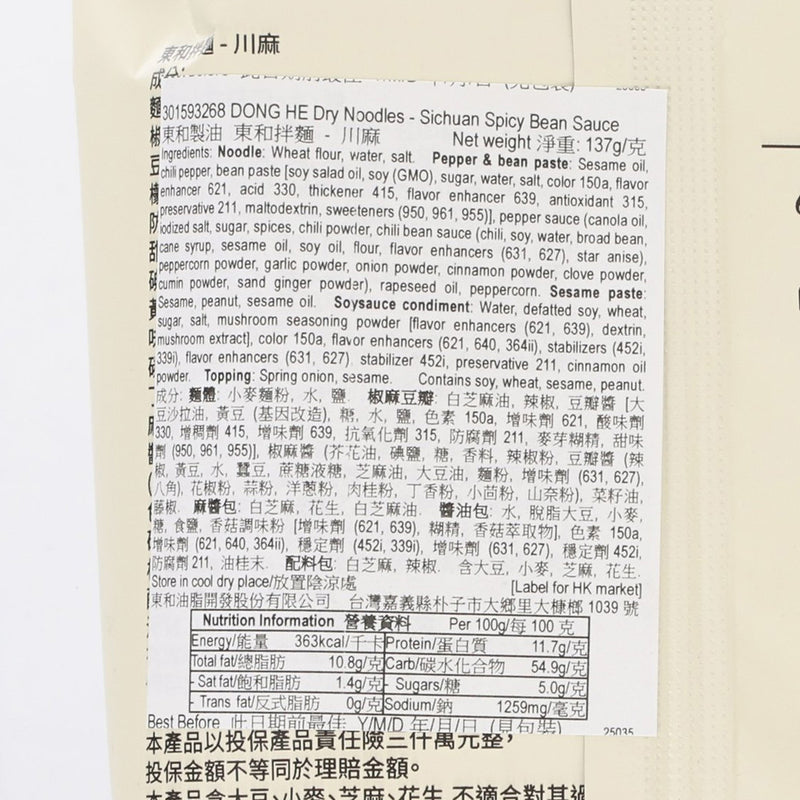 東和拌麵 - 川麻
301593268 DONG HE Dry Noodles - Sichuan Spicy Bean Sauce
東和製油 東和拌麵 - 川麻 Net weight 淨重: 137g/克
Ingredients: Noodle: Wheat flour, water, salt. Pepper & bean paste: Sesame oil,
chili pepper, bean paste [soy salad oil, soy (GMO), sugar, water, salt, color 150a, flavor
enhancer 621, acid 330, thickener 415, flavor enhancer 639, antioxidant 315,
preservative 211, maltodextrin, sweeteners (950, 961, 955)], pepper sauce (canola oil,
iodized salt, sugar, spices, chili powder, chili bean sauce (chili, soy, water, broad bean,
cane syrup, sesame oil, soy oil, flour, flavor enhancers (631, 627), star anise),
peppercorn powder, garlic powder, onion powder, cinnamon powder, clove powder,
cumin powder, sand ginger powder), rapeseed oil, peppercorn. Sesame paste:
Sesame, peanut, sesame oil. Soysauce condiment: Water, defatted soy, wheat,
sugar, salt, mushroom seasoning powder [flavor enhancers (621, 639), dextrin,
mushroom extract], color 150a, flavor enhancers (621, 640, 364ii), stabilizers (452i,
339i), flavor enhancers (631, 627), stabilizer 452i, preservative 211, cinnamon oil
powder. Topping: Spring onion, sesame. Contains soy, wheat, sesame, peanut.
成分: 麵體: 小麥麵粉, 水, 鹽. 椒麻豆瓣: 白芝麻油, 辣椒, 豆瓣醬 [大
豆沙拉油, 黃豆 (基因改造), 糖, 水, 鹽, 色素 150a, 增味劑 621, 酸味劑
330, 增稠劑 415, 增味劑 639, 抗氧化劑 315, 防腐劑 211, 麥芽糊精, 甜味
劑 (950, 961, 955)], 椒麻醬 (芥花油, 碘鹽, 糖, 香料, 辣椒粉, 豆瓣醬 (辣
椒, 黃豆, 水, 蠶豆, 蔗糖液糖, 芝麻油, 大豆油, 麵粉, 增味劑 (631, 627),
八角), 花椒粉, 蒜粉, 洋蔥粉, 肉桂粉, 丁香粉, 小茴粉, 山奈粉), 菜籽油,
藤椒. 麻醬包: 白芝麻, 花生, 白芝麻油. 醬油包: 水, 脫脂大豆, 小麥,
糖, 食鹽, 香菇調味粉 [增味劑 (621, 639), 糊精, 香菇萃取物], 色素 150a,
增味劑 (621, 640, 364ii), 穩定劑 (452i, 339i), 增味劑 (631, 627), 穩定劑 452i,
防腐劑 211, 油桂末. 配料包: 白芝麻, 辣椒. 含大豆, 小麥, 芝麻, 花生.
Store in cool dry place/放置陰涼處 [Label for HK market]
東和油脂開發股份有限公司 台灣嘉義縣朴子市大鄉里大槺榔 1039 號
Nutrition Information 營養資料 Per 100g/每 100 克
Energy/能量 363kcal/千卡 Protein/蛋白質 11.7g/克
Total fat/總脂肪 10.8g/克 Carb/碳水化合物 54.9g/克
- Sat fat/飽和脂肪 1.4g/克 - Sugars/糖 5.0g/克
- Trans fat/反式脂肪 0g/克 Sodium/鈉 1259mg/毫克
Best Before 此日期前最佳 Y/M/D 年/月/日 (見包裝) 25035
本產品以投保產品責任險三仟萬元整,
投保金額不等同於理賠金額。
本產品含大豆、小麥、芝麻、花生,不適合對其過